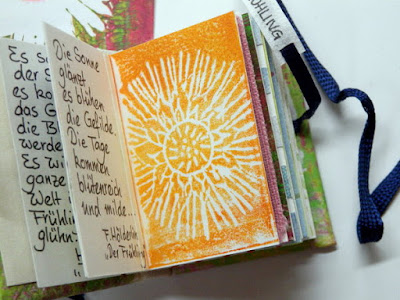 Es
der S
es ko
das G
die B
werde
Es wi
ganze
Welt
Frühlin
glühn
Die Sonne
glänzt
es blühen
die Gefilde.
Die Tage
kommen
blütenreich
und milde...
F. Hölderlin
"Der Frühling"
ÜHLING